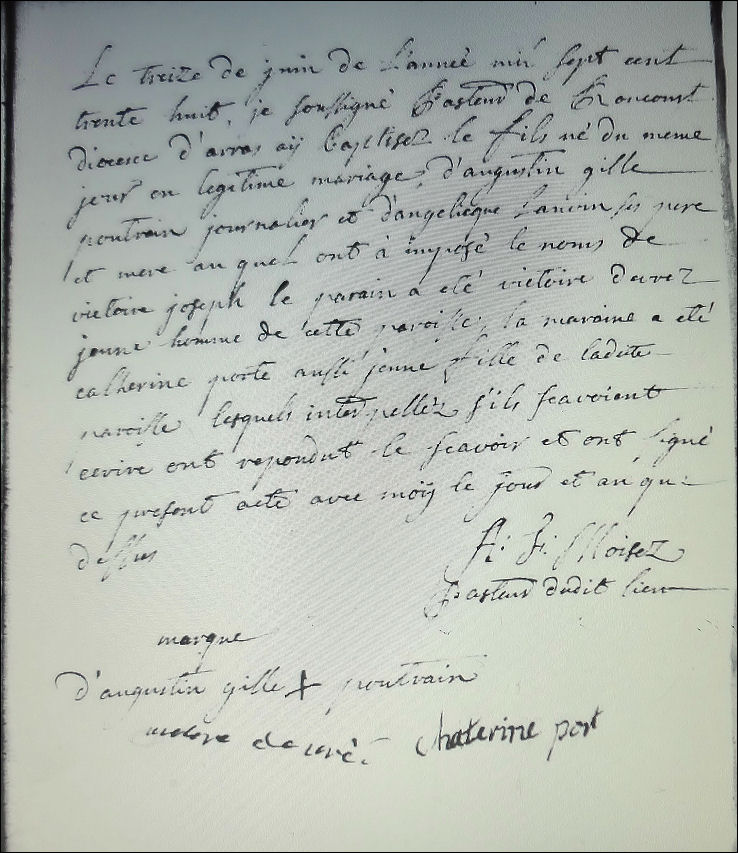 Le treize de juin de L'anneé mil sept cent
trente huit, je soussigné Pasteur de Roncourt
diocese d'arras aÿ baptisez le fils né du meme
jour en legitime mariage, d'augustin gille
poutrain journalier et d'angelique Lanvin ses pere
et mere auquel ont à imposé le noms de
victoire joseph le parain a eté victoire
jeune homme de cette paroisse, la maraine a eté
catherine porte aussi jeune fille de ladite
paroisse lesquels interpellez s'ils scavoient
ecrire ont repondut le scavoir et ont signé
ce present acte avec moÿ le jour et an qu-
dessus
A: F: Moisez
Pasteur dudit lieu
marque
d'augustin gille + poutrain
chaterine port